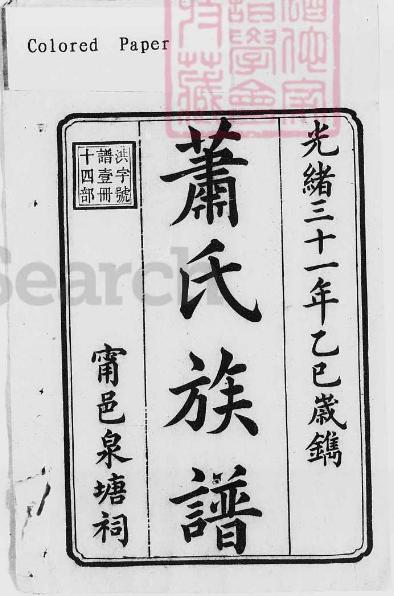 Colored Paper
光緒三十一年乙巳歲鐫
蕭氏族譜
洪字號
譜壹冊
十四部
甯邑泉塘祠
Search